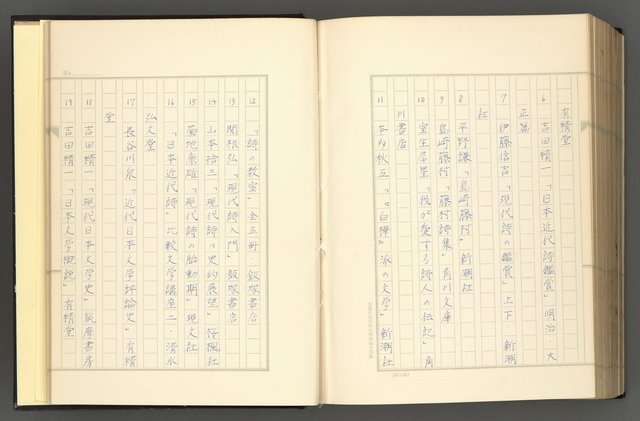 有精堂
6 吉田精一「日本近代詩鑑賞」明治・大
正篇
7 伊藤信吉「現代詩の鑑賞」上下 新潮
社
8 平野謙「島崎藤村」新潮社
9 島崎藤村「藤村詩集」角川文庫
10 室生犀星「我が愛する詩人の伝記」角
川書店
11 本多秋五「『白樺』派の文学」新潮社
12 「詩の教室」全五冊・飯塚書店
13 関根弘「現代詩入門」飯塚書店
14 山本捨三「現代詩の史的展望」桜楓社
15 菊地康雄「現代詩の胎動期」現文社
16 「日本近代詩」比較文学講座二・清水
弘文堂
17 長谷川泉「近代日本文学評論史」有精
堂
18 吉田精一「現代日本文学史」筑摩書房
19 吉田精一「日本文学概説」有精堂
No.
(20×20)